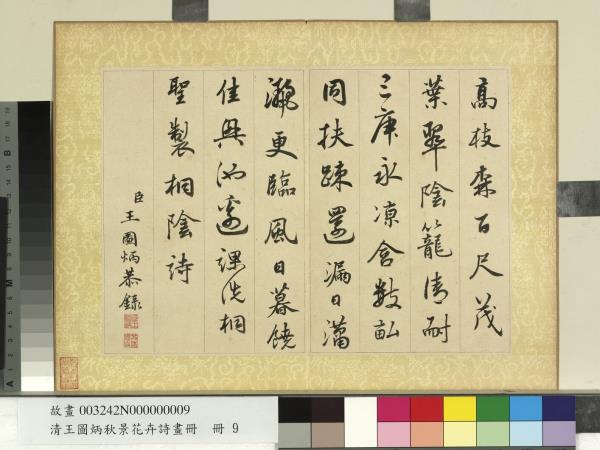 高枝森百尺茂
葉翠陰籠清耐
三庚永凉含數畝
同扶疎還漏日瀟
灑更臨風日暮饒
佳興邊課洗桐
聖製桐陰詩
臣王圖炳恭錄
故畫 003242N000000009
清王圖炳秋景花卉詩畫冊 冊 9
B
M
A